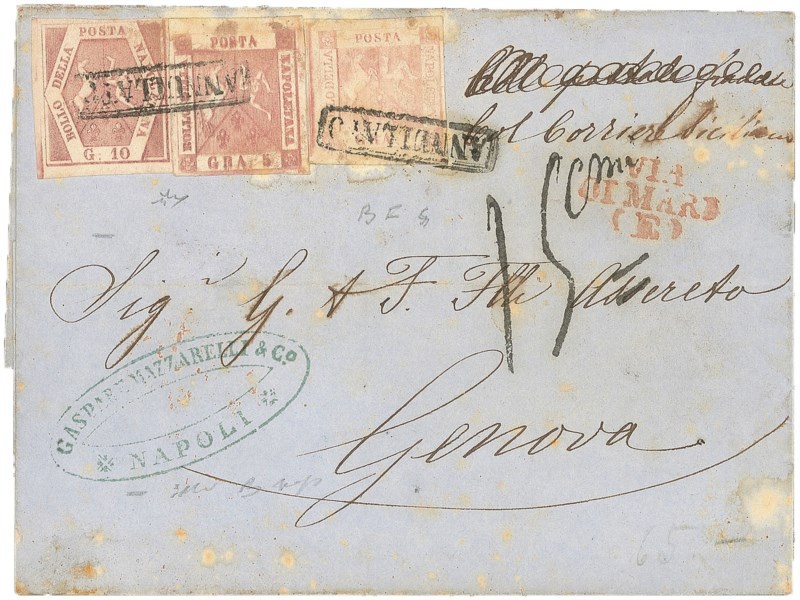 BOLLO DELLA POSTA NAPOLETANA
G: 10
POSTA
NAPOLETANA
BOLLO
GRA. 5
POSTA
BOLLO DELLA
ANNULLATO
ANNULLATO
Col Corriere Siciliano
VIA
DI MARE
(E)
15 Cmi
B F G
Sigri G. & F. Flli Assereto
Genova
GASPARE MAZZARELLI & Co.
NAPOLI
65.—